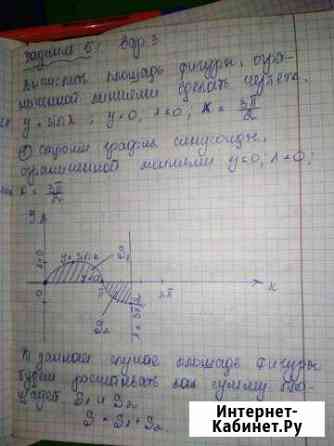 Задание 5. Вар. 3
Вычислить площадь фигуры, огра-
ниченной линиями сделать чертеж.
y = sin x, y = 0, x = 0; x = 3π/2
① строим график синусоиды,
ограниченной линиями y = 0; x = 0;
x = 3π/2
y
y = sin x
S₁
y = 0
0
π
2π
x
S₂
x = 3π/2
В данном случае площадь фигуры
будем рассматривать как сумму пло-
щадей S₁ и S₂
S = S₁ + S₂
Интернет-
Кабинет.Ру